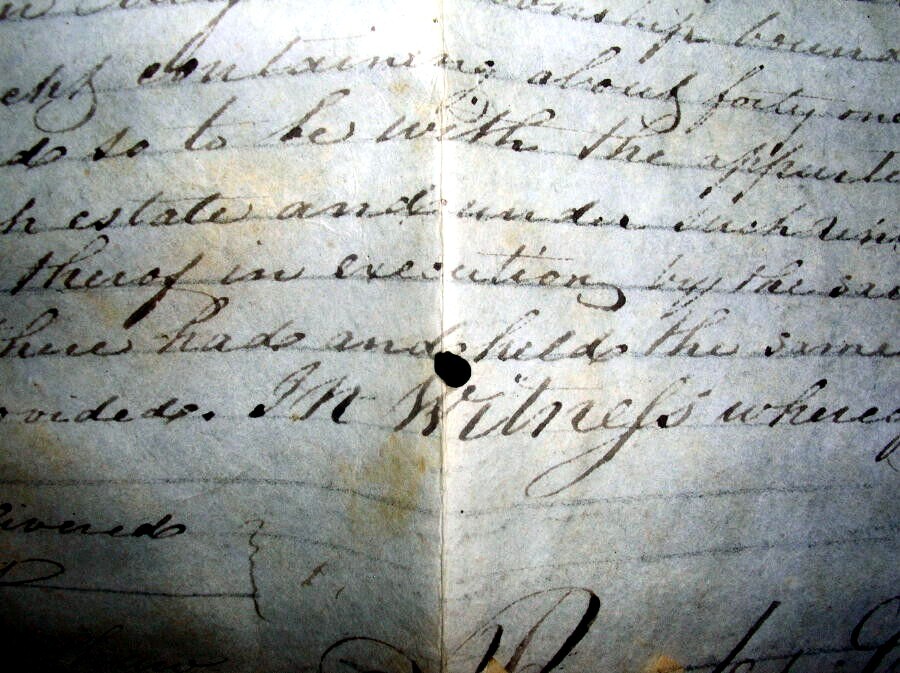 ownship bound
containing about forty one
so to be with the appurte
h estate and under such
therof in execution by the
here had and held the same
ovided. In Witneſs whereo
livered